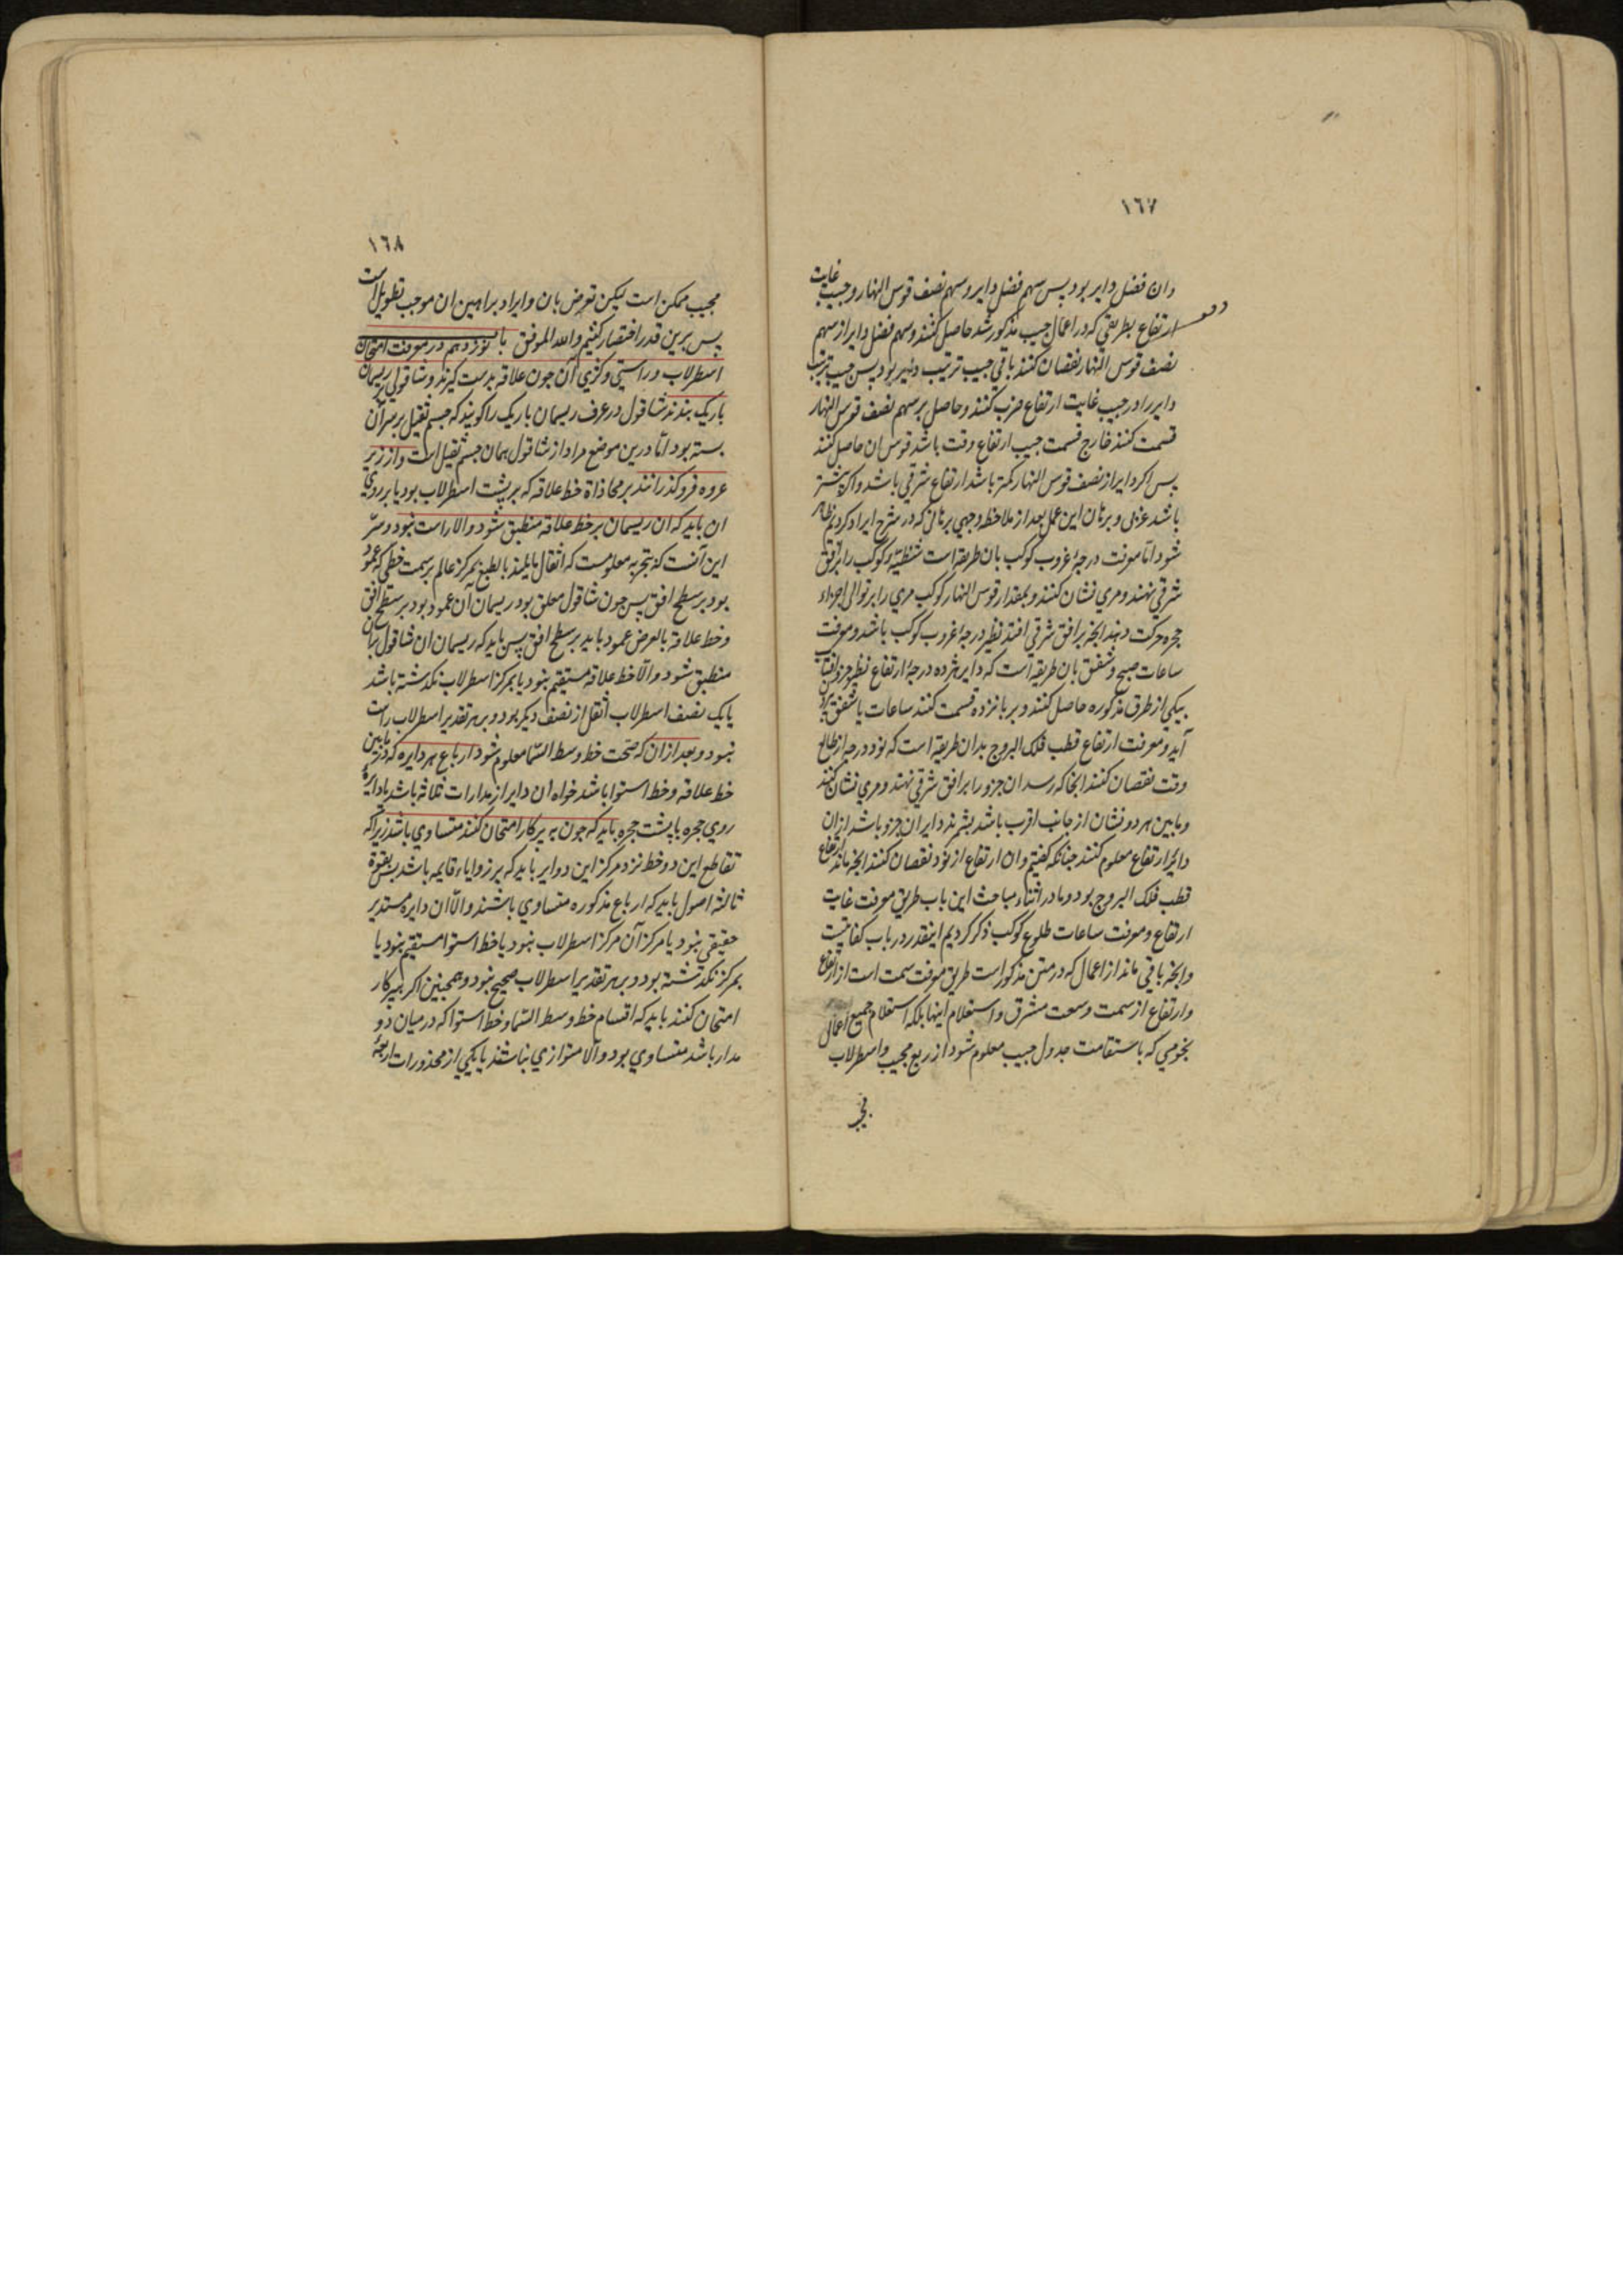 ١٦٧
وان فضل دایر بود پس سهم فضل دایر و سهم نصف قوس النهار و جیب غایت
ارتفاع بطریقی که در اعمال جیب مذکور شد حاصل کنند و سهم فضل دایر از سهم
نصف قوس النهار نقصان کنند باقی جیب ترتیب دایر بود پس جیب ترتیب
دایر را در جیب غایت ارتفاع ضرب کنند و حاصل بر سهم نصف قوس النهار
قسمت کنند خارج قسمت جیب ارتفاع وقت باشد قوس ان حاصل کنند
پس اکر دایر از نصف قوس النهار کمتر باشد ارتفاع شرقی باشد و اکر بیشتر
باشد غربی و برهان این عمل بعد از ملاحظه وجهی برهانی که در شرح ایراد کردیم ظاهر
شود اما معرفت درجهٔ غروب کوکب بان طریقه است شظیّهٔ کوکب را بر افق
شرقی نهند و مری نشان کنند و بمقدار قوس النهار کوکب مری را بر توالی اجزاء
حجره حرکت دهند انجه بر افق شرقی افتد نظیر درجهٔ غروب کوکب باشد و معرفت
ساعات صبح و شفق بان طریقه است که دایر هژده درجهٔ ارتفاع نظیر جزو افتاب
بیکی از طرق مذکوره حاصل کنند و بر بانزده قسمت کنند ساعات یا شفق بیرون
آید و معرفت ارتفاع قطب فلک البروج بدان طریقه است که نود درجه از طالع
وقت نقصان کنند انجا که رسد ان جزو را بر افق شرقی نهند و مری نشان کنند
و ما بین هر دو نشان از جانب اقرب باشد بشمرند دایر ان جزو باشد از ان
دایر ارتفاع معلوم کنند جنانکه کفتیم و ان ارتفاع از نود نقصان کنند انجه ماند ارتفاع
قطب فلک البروج بود و ما در اثناء مباحث این باب طریق معرفت غایت
ارتفاع و معرفت ساعات طلوع کوکب ذکر کردیم اینقدر در باب کفایتست
و انجه باقی ماند از اعمال که در متن مذکور است طریق معرفت سمت است از ارتفاع
و ارتفاع از سمت و سعت مشرق و استعلام اینها بلکه استعلام جمیع اعمال
نجومی که باستقامت جدول جیب معلوم شود از ربع مجیب و اسطرلاب
١٦٨
مجیب ممکن است لیکن تعرض بان و ایراد براهین ان موجب تطویل است
پس برین قدر اختصار کنیم والله الموفق باب نوزدهم در معرفت امتحان
اسطرلاب و راستی و کژی آن جون علاقه بدست کیرند و شاقولی بریسمان
باریک بندند شاقول در عرف ریسمان باریک را کویند که جسم ثقیل بر سر آن
بسته بود اما درین موضع مراد از شاقول همان جسم ثقیل است و از زیر
عروه فرو کذرانند بر محاذاة خط علاقه که بر پشت اسطرلاب بود یا بر روی
ان باید که ان ریسمان بر خط علاقه منطبق شود و الا راست نبود و سرّ
این آنست که بتجربه معلومست که اثقال مایلند بالطبع بمرکز عالم بر سمت خطی که عمود
بود بر سطح افق پس جون شاقول معلق بود ریسمان آن عمود بود بر سطح افق
و خط علاقه بالعرض عمود باید بر سطح افق پس باید که ریسمان ان شاقول بان
منطبق شود و الّا خط علاقه مستقیم نبود یا بمرکز اسطرلاب نکذشته باشد
یا یک نصف اسطرلاب اثقل از نصف دیکر بود و بر هر تقدیر اسطرلاب راست
نبود و بعد از ان که صحت خط وسط السّما معلوم شود ارباع هر دایره که ما بین
خط علاقه و خط استوا باشد خواه ان دایر از مدارات ثلاثه باشد یا دایرهٔ
روی حجره یا پشت حجره باید که جون به پرکار امتحان کنند متساوی باشد زیرا که
تقاطع این دو خط نزد مرکز این دوایر باید که بر زوایاء قایمه باشد پس بقوة
ثالثه اصول باید که ارباع مذکوره متساوی باشند و الّا ان دایره مستدیر
حقیقی نبود یا مرکز آن مرکز اسطرلاب نبود یا خط استوا مستقیم نبود یا
بمرکز نکذشته بود و بر هر تقدیر اسطرلاب صحیح نبود و همجنین اکر بپرکار
امتحان کنند باید که اقسام خط وسط السّما و خط استوا که در میان دو
مدار باشد متساوی بود و الّا متوازی نباشند یا یکی از محذورات اربعهٔ